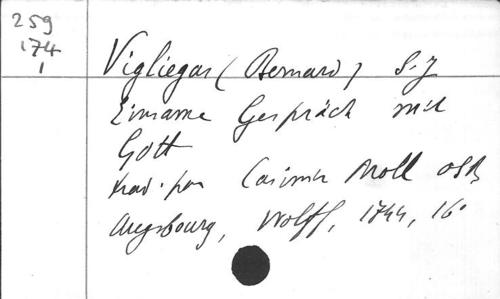 259
174
1
Vigliegas (Bernard) S.J
Einsame Gespräch mit
Gott
trad. par Casimir Moll OSB
Augsbourg, Wolff, 1744, 16°